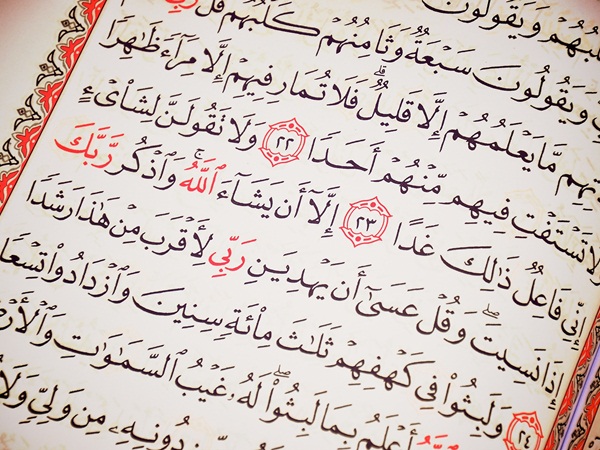 لْبُهُمْ وَيَقُولُونَ
وَيَقُولُونَ سَبْعَةٌ وَثَامِنُهُمْ كَلْبُهُمْ قُل رَّبِّ
تِهِم مَّا يَعْلَمُهُمْ إِلَّا قَلِيلٌ ۗ فَلَا تُمَارِ فِيهِمْ إِلَّا مِرَآءً ظَٰهِرًا
وَلَا تَسْتَفْتِ فِيهِم مِّنْهُمْ أَحَدًا ٢٢ وَلَا تَقُولَنَّ لِشَا۟ىْءٍ
إِنِّي فَاعِلٌ ذَٰلِكَ غَدًا ٢٣ إِلَّآ أَن يَشَآءَ ٱللَّهُ ۚ وَٱذْكُر رَّبَّكَ
إِذَا نَسِيتَ ۖ وَقُلْ عَسَىٰٓ أَن يَهْدِيَنِ رَبِّي لِأَقْرَبَ مِنْ هَٰذَا رَشَدًا
٢٤ وَلَبِثُوا۟ فِي كَهْفِهِمْ ثَلَٰثَ مِا۟ئَةٍ سِنِينَ وَٱزْدَادُوا۟ تِسْعًا
أَعْلَمُ بِمَا لَبِثُوا۟ ۖ لَهُۥ غَيْبُ ٱلسَّمَٰوَٰتِ وَٱلْأَرْضِ
دُونِهِۦ مِن وَلِيٍّ وَلَا